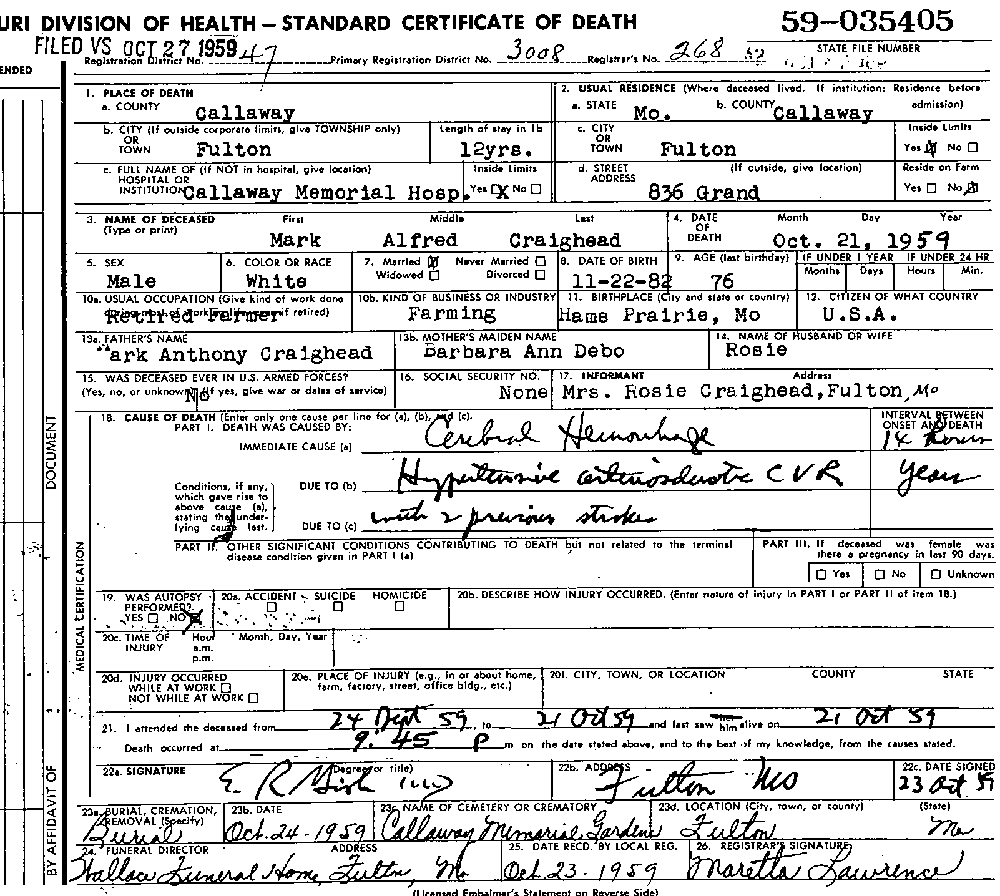 URI DIVISION OF HEALTH — STANDARD CERTIFICATE OF DEATH 59—035405
FILED VS OCT 27 1959 STATE FILE NUMBER
Registration District No. 47 Primary Registration District No. 3008 Registrar's No. 268
ENDED
1. PLACE OF DEATH 2. USUAL RESIDENCE (Where deceased lived. If institution: Residence before admission)
a. COUNTY Callaway a. STATE Mo. b. COUNTY Callaway
b. CITY (If outside corporate limits, give TOWNSHIP only) OR TOWN Fulton Length of stay in 1b 12yrs. c. CITY OR TOWN Fulton Inside Limits Yes No
c. FULL NAME OF (If NOT in hospital, give location) HOSPITAL OR INSTITUTION Callaway Memorial Hosp. Inside Limits Yes X No d. STREET ADDRESS (If outside, give location) 836 Grand Reside on Farm Yes No
3. NAME OF DECEASED (Type or print) First Middle Last 4. DATE OF DEATH Month Day Year
Mark Alfred Craighead Oct. 21, 1959
5. SEX 6. COLOR OR RACE 7. Married Never Married Widowed Divorced 8. DATE OF BIRTH 9. AGE (last birthday) IF UNDER 1 YEAR IF UNDER 24 HR
Months Days Hours Min.
Male White 11-22-82 76
10a. USUAL OCCUPATION (Give kind of work done during most of working life, even if retired) 10b. KIND OF BUSINESS OR INDUSTRY 11. BIRTHPLACE (City and state or country) 12. CITIZEN OF WHAT COUNTRY
Retired Farmer Farming Hams Prairie, Mo U.S.A.
13a. FATHER'S NAME 13b. MOTHER'S MAIDEN NAME 14. NAME OF HUSBAND OR WIFE
Mark Anthony Craighead Barbara Ann Debo Rosie
15. WAS DECEASED EVER IN U.S. ARMED FORCES? 16. SOCIAL SECURITY NO. 17. INFORMANT Address
(Yes, no, or unknown) (If yes, give war or dates of service) No None Mrs. Rosie Craighead, Fulton, Mo
18. CAUSE OF DEATH (Enter only one cause per line for (a), (b), and (c). INTERVAL BETWEEN ONSET AND DEATH
PART I. DEATH WAS CAUSED BY:
IMMEDIATE CAUSE (a) Cerebral Hemorrhage 14 hours
Conditions, if any, which gave rise to above cause (a), stating the underlying cause last.
DUE TO (b) Hypertensive arteriosclerotic CVR years
DUE TO (c) with 2 previous strokes
PART II. OTHER SIGNIFICANT CONDITIONS CONTRIBUTING TO DEATH but not related to the terminal disease condition given in PART I (a)
PART III. If deceased was female was there a pregnancy in last 90 days.
Yes No Unknown
19. WAS AUTOPSY PERFORMED? YES NO 20a. ACCIDENT SUICIDE HOMICIDE 20b. DESCRIBE HOW INJURY OCCURRED. (Enter nature of injury in PART I or PART II of item 18.)
20c. TIME OF INJURY Hour a.m. p.m. Month, Day, Year
20d. INJURY OCCURRED WHILE AT WORK NOT WHILE AT WORK 20e. PLACE OF INJURY (e.g., in or about home, farm, factory, street, office bldg., etc.) 20f. CITY, TOWN, OR LOCATION COUNTY STATE
21. I attended the deceased from 24 Sept 59, to 21 Oct 59 and last saw him alive on 21 Oct 59
Death occurred at 9:45 P m on the date stated above, and to the best of my knowledge, from the causes stated.
22a. SIGNATURE (Degree or title) 22b. ADDRESS 22c. DATE SIGNED
E R Fulton Mo 23 Oct 59
23a. BURIAL, CREMATION, REMOVAL (Specify) 23b. DATE 23c. NAME OF CEMETERY OR CREMATORY 23d. LOCATION (City, town, or county) (State)
Burial Oct. 24-1959 Callaway Memorial Gardens Fulton Mo
24. FUNERAL DIRECTOR ADDRESS 25. DATE RECD. BY LOCAL REG. 26. REGISTRAR'S SIGNATURE
Wallace Funeral Home, Fulton, Mo. Oct. 23-1959 Maretta Lawrence
(Licensed Embalmer's Statement on Reverse Side)
DOCUMENT
MEDICAL CERTIFICATION
BY AFFIDAVIT OF